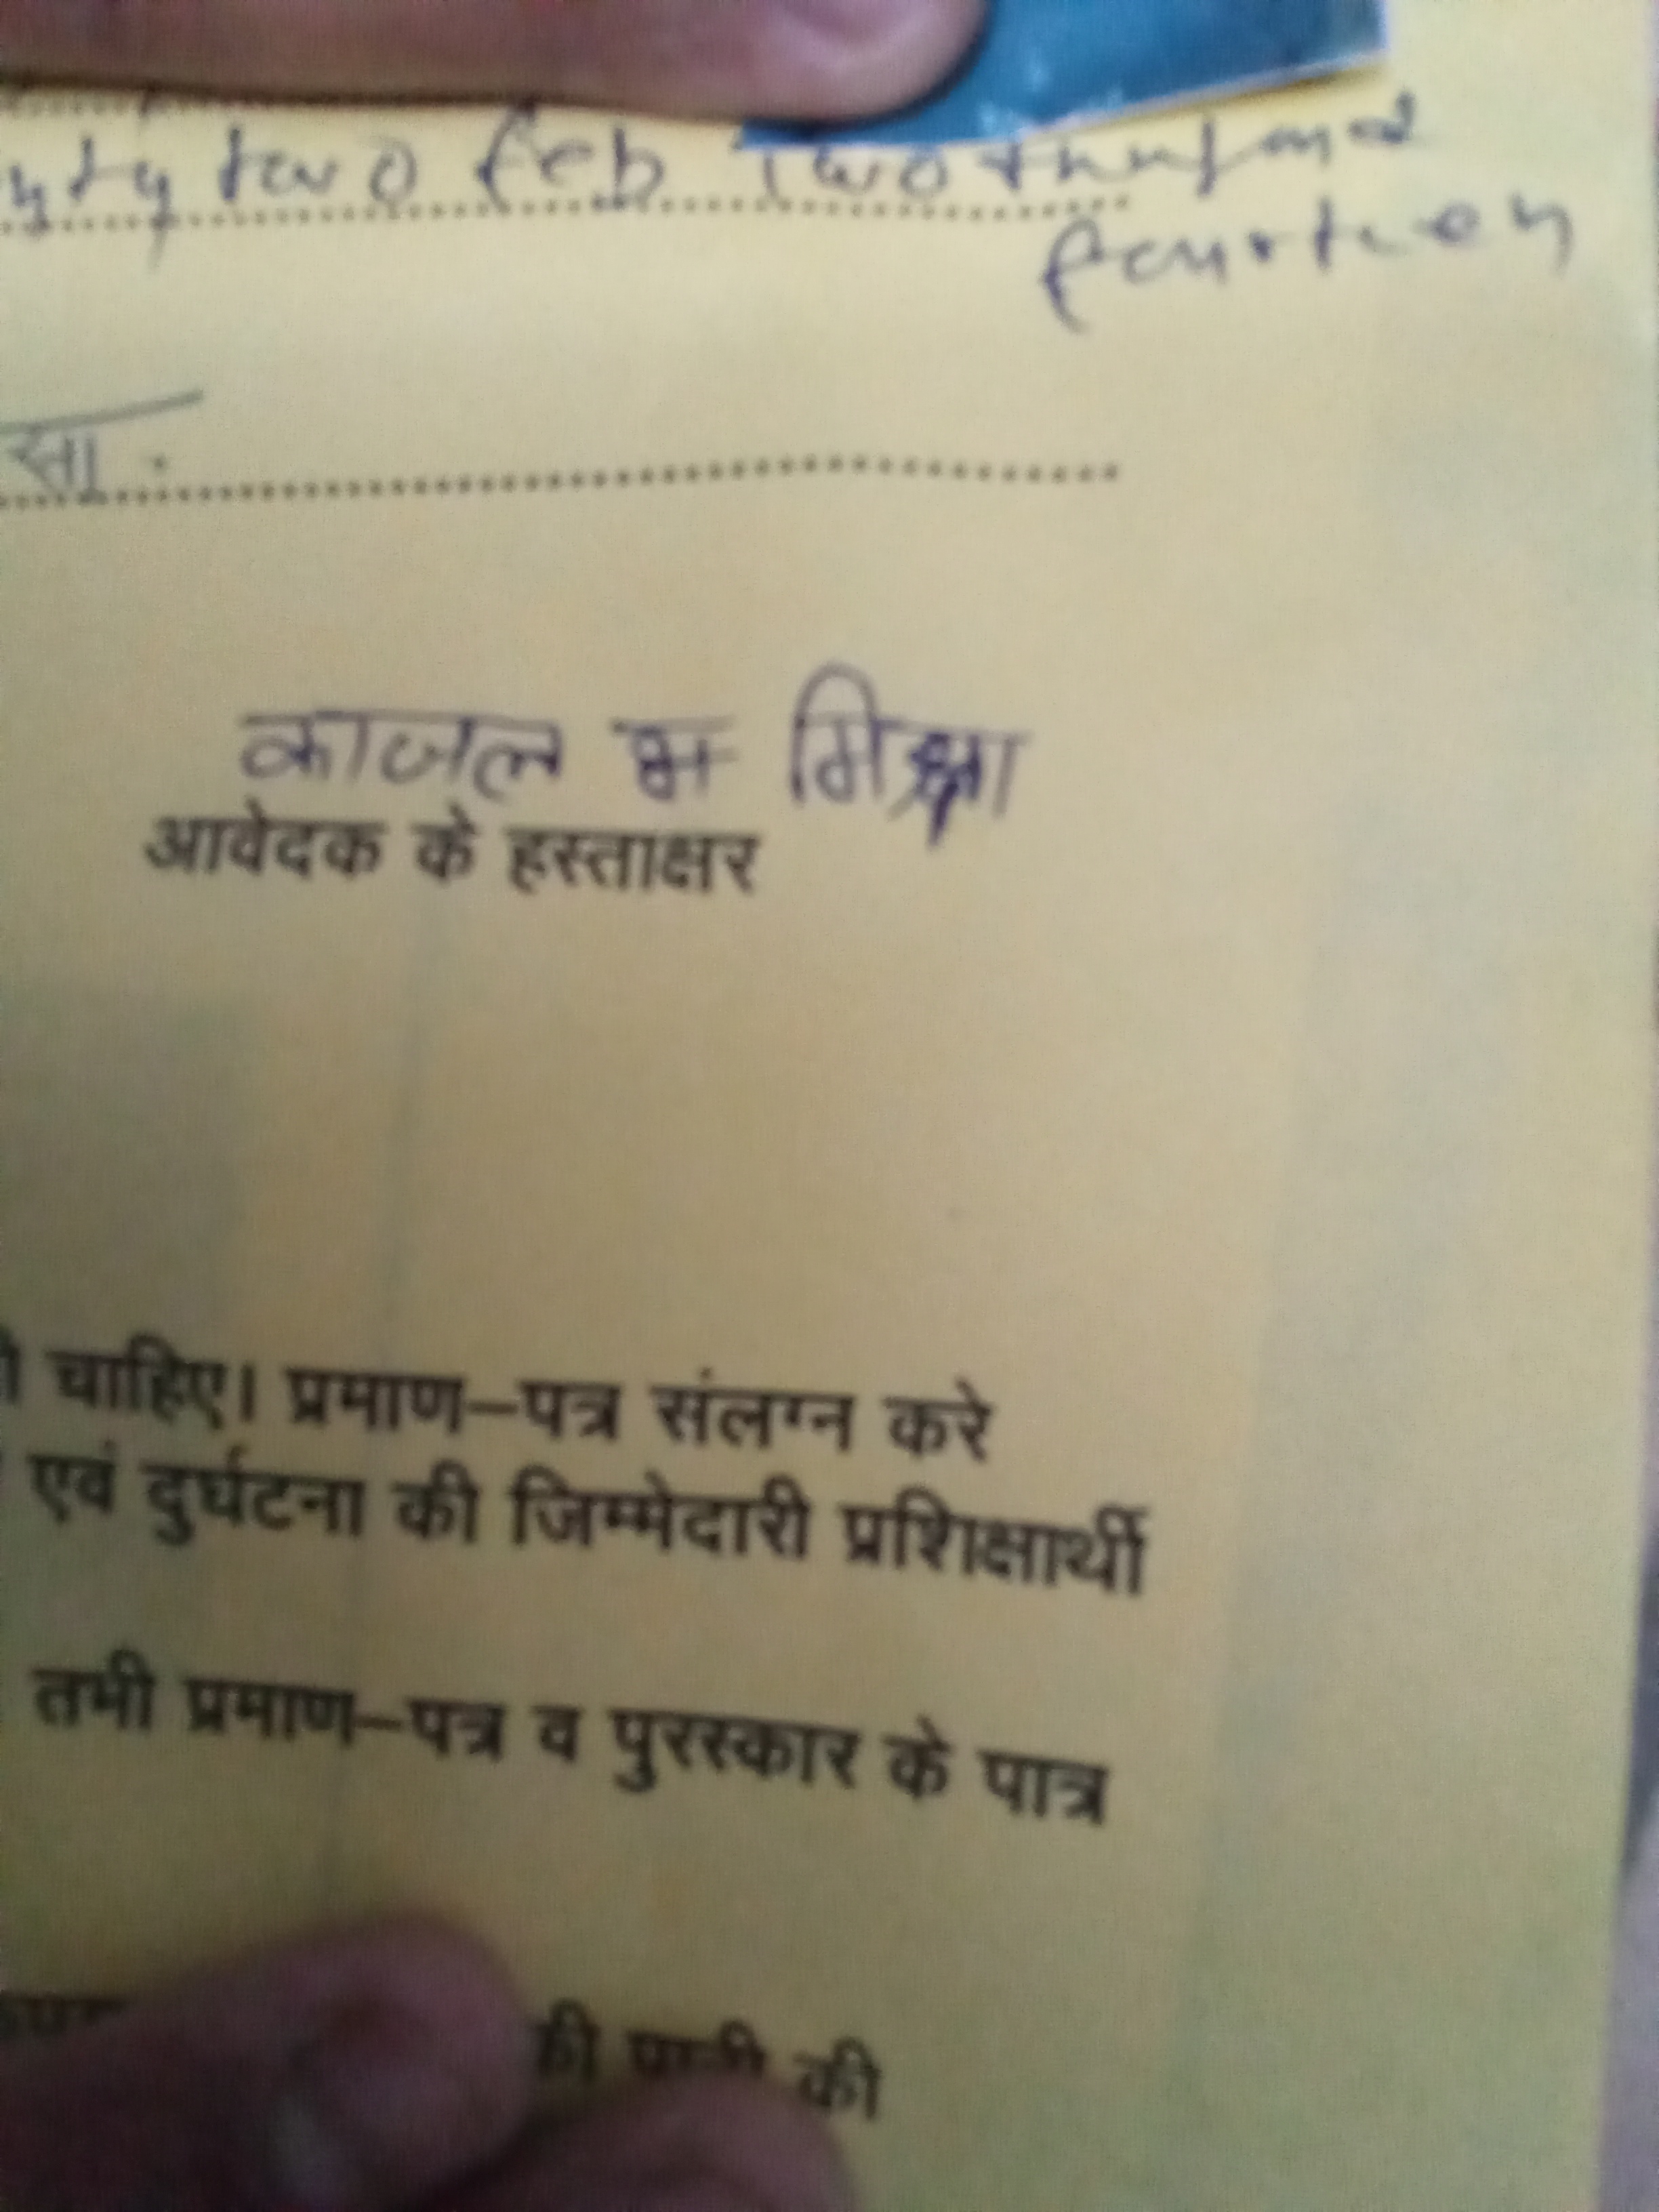 two feb Two thusand
fourteen
सा.
काजल मिश्रा
आवेदक के हस्ताक्षर
चाहिए। प्रमाण–पत्र संलग्न करे
एवं दुर्घटना की जिम्मेदारी प्रशिक्षार्थी
तभी प्रमाण–पत्र व पुरस्कार के पात्र
की